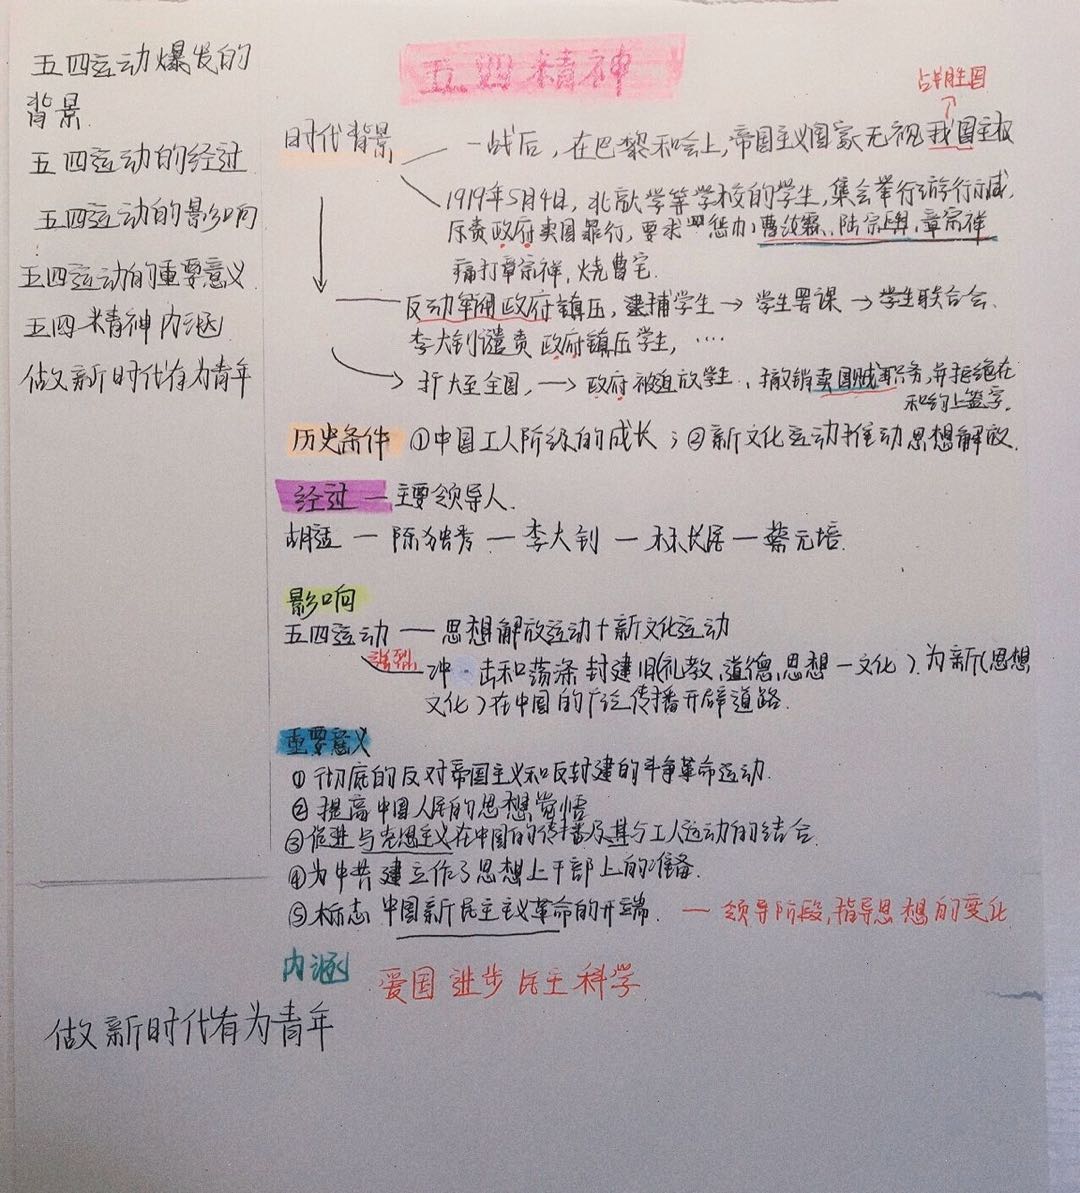 五四精神
五四运动爆发的
背景
五四运动的经过
五四运动的影响
五四运动的重要意义
五四精神内涵
做新时代有为青年
战胜国
时代背景
一战后，在巴黎和会上，帝国主义国家无视我国主权
1919年5月4日，北京大学等学校的学生，集会举行游行示威，
斥责政府卖国罪行，要求惩办：曹汝霖、陆宗舆、章宗祥
痛打章宗祥，火烧曹宅.
反动军阀政府镇压，逮捕学生→学生罢课→学生联合会.
李大钊谴责政府镇压学生，····
扩大至全国，→政府被迫放学生、撤销卖国贼职务，并拒绝在
和约上签字.
历史条件 ①中国工人阶级的成长；②新文化运动推动思想解放.
经过—主要领导人.
胡适—陈独秀—李大钊—林长民—蔡元培.
影响
五四运动—思想解放运动+新文化运动
冲击和荡涤封建旧(礼教、道德、思想—文化).为新(思想
文化)在中国的广泛传播开辟道路.
重要意义
①彻底的反对帝国主义和反封建的斗争革命运动.
②提高中国人民的思想觉悟
③促进马克思主义在中国的传播及其与工人运动的结合.
④为中共建立作了思想上干部上的准备.
⑤标志中国新民主主义革命的开端. —领导阶段，指导思想的变化
内涵 爱国 进步 民主 科学
做新时代有为青年